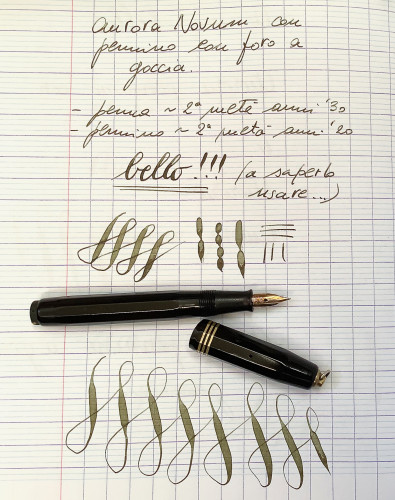 Aurora Novum con
pennino con foro a
goccia.
- penna ~ 2ª metà anni '30
- pennino ~ 2ª metà anni '20
bello!!! (a saperlo
usare...)